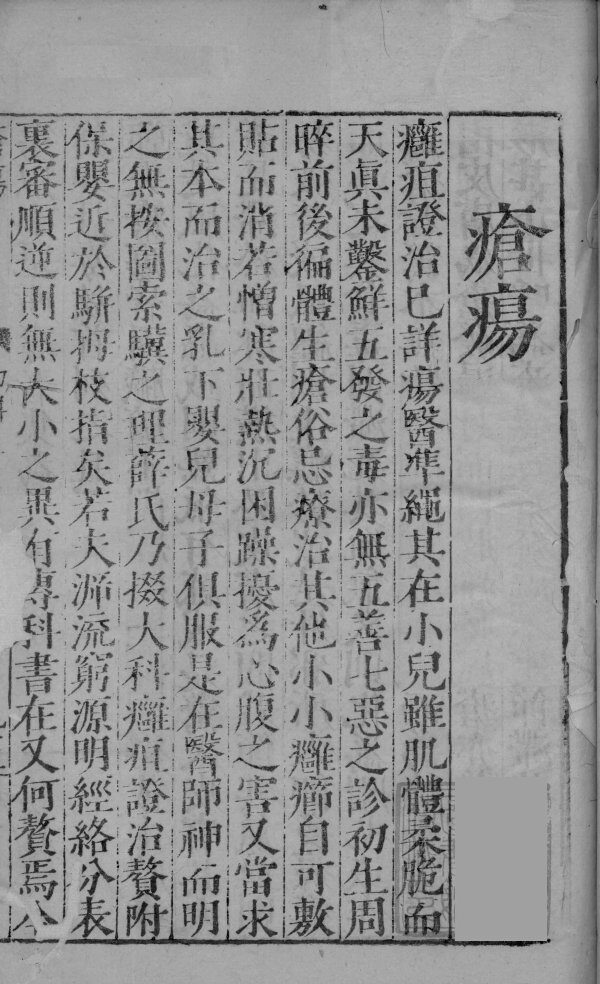 瘡瘍
癰疽證治已詳瘍醫準繩其在小兒雖肌體柔脆而
天眞未鑿鮮五發之毒亦無五善七惡之診初生周
晬前後徧體生瘡俗忌療治其他小小癰癤自可敷
貼而消若憎寒壯熱沉困躁擾為心腹之害又當求
其本而治之乳下嬰兒母子俱服是在醫師神而明
之無按圖索驥之理薛氏乃掇大科癰疽證治贅附
保嬰近於駢拇枝指矣若夫泝流窮源明經絡分表
裏審順逆則無大小之異有專科書在又何贅焉今